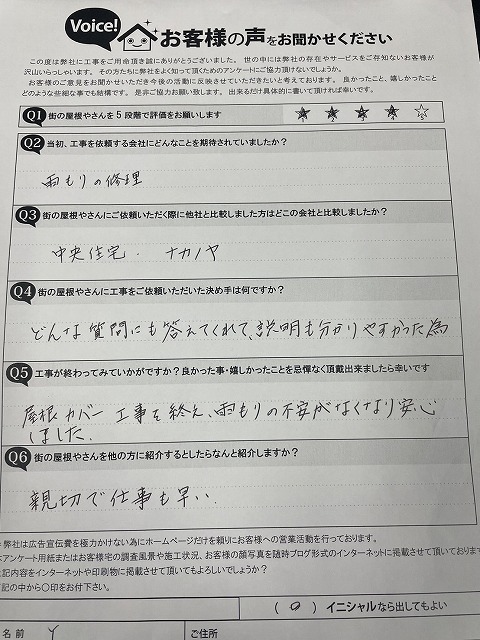 Voice! お客様の声をお聞かせください
この度は弊社に工事をご用命頂き誠にありがとうございました。世の中には弊社の存在やサービスをご存知ないお客様が
沢山いらっしゃいます。その方たちに弊社をよく知って頂くためのアンケートにご協力頂けないでしょうか。
お客様のご意見をお聞かせいただき今後の活動に反映させていただきたいと考えております。良かったこと、嬉しかったこと
どのような些細な事でも結構です。是非ご協力お願い致します。出来るだけ具体的に書いて頂ければ幸いです。
Q1 街の屋根やさんを5段階で評価をお願いします
1 2 3 4 5
Q2 当初、工事を依頼する会社にどんなことを期待されていましたか?
雨もりの修理
Q3 街の屋根やさんにご依頼いただく際に他社と比較しました方はどこの会社と比較しましたか?
中央住宅. ナカノヤ
Q4 街の屋根やさんに工事をご依頼いただいた決め手は何ですか?
どんな質問にも答えてくれて、説明も分かりやすかった為
Q5 工事が終わってみていかがですか?良かった事・嬉しかったことを忌憚なく頂戴出来ましたら幸いです
屋根カバー工事を終え、雨もりの不安がなくなり安心
しました.
Q6 街の屋根やさんを他の方に紹介するとしたらなんと紹介しますか?
親切で仕事も早い.
弊社は広告宣伝費を極力かけない為にホームページだけを頼りにお客様への営業活動を行っております。
アンケート用紙またはお客様宅の調査風景や施工状況、お客様の顔写真を随時ブログ形式のインターネットに掲載させて頂いております
記内容をインターネットや印刷物に掲載させて頂いてもよろしいでしょうか?
記の中から○印をお付下さい。
(○) イニシャルなら出してもよい
名前 Y ご住所